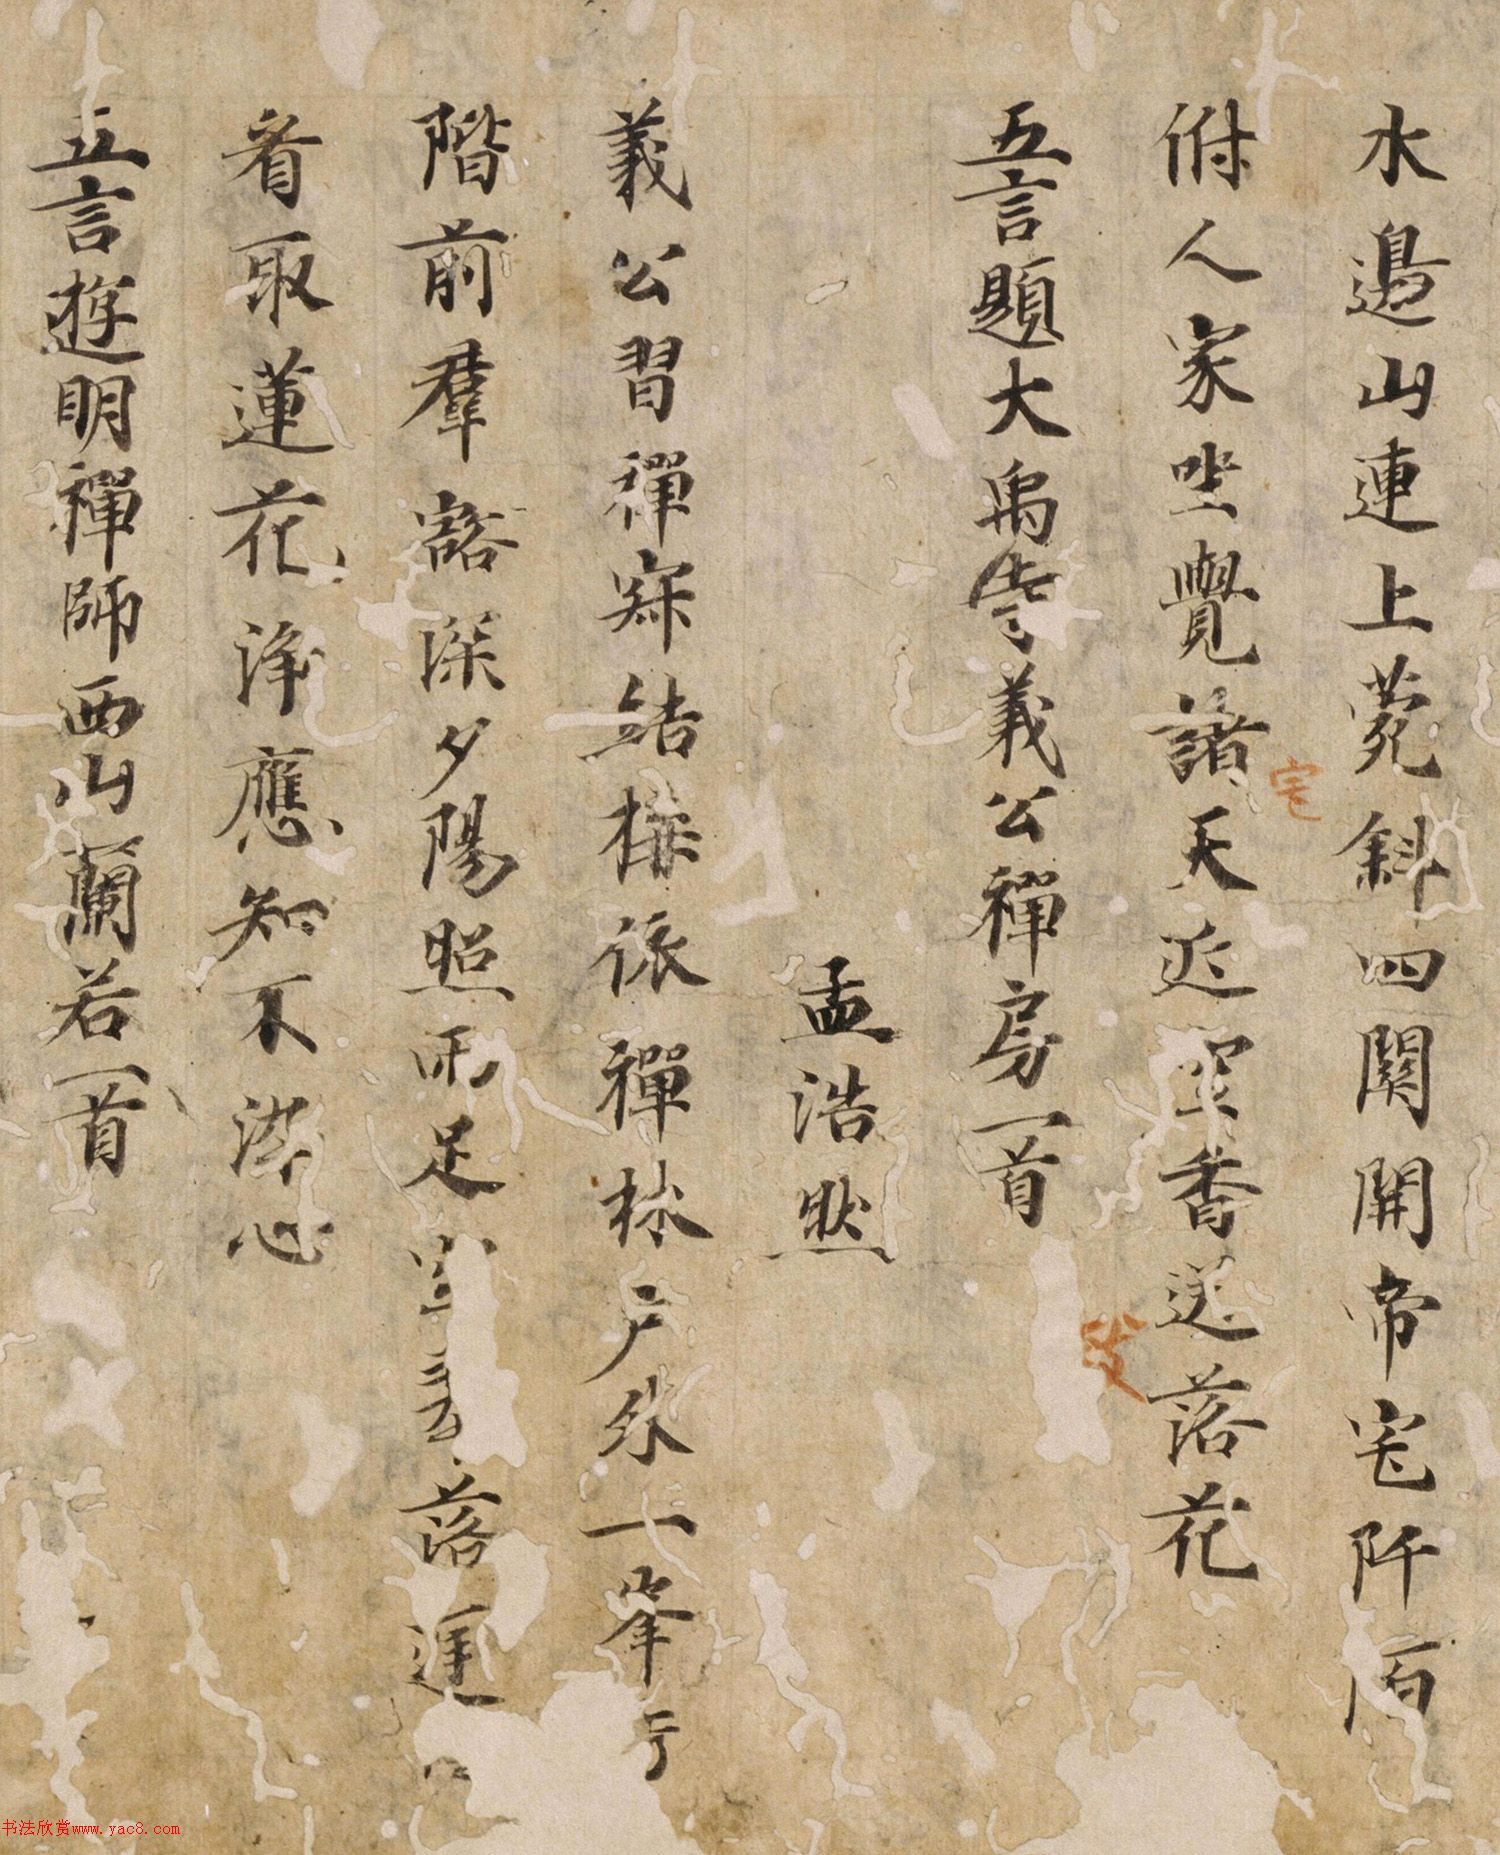 水邊山連上菀斜四關開帝宅阡陌
俯人家坐覺諸天近空香送落花
宅
五言題大禹寺義公禪房一首
孟浩然
義公習禪寂結構依禪林戶外一峯
階前羣谿深夕陽照雨足空落
看取蓮花淨應知不染心
五言遊明禪師西山蘭若一首
书法欣赏www.yac8.com